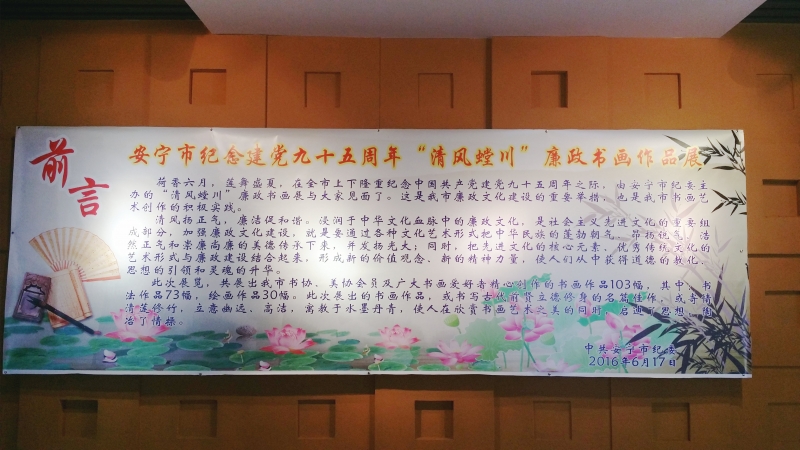 前言
安宁市纪念建党九十五周年“清风螳川”廉政书画作品展
荷香六月，莲舞盛夏，在全市上下隆重纪念中国共产党建党九十五周年之际，由安宁市纪委主
办的“清风螳川”廉政书画展与大家见面了。这是我市廉政文化建设的重要举措，也是我市书画艺
术创作的积极实践。
清风扬正气，廉洁促和谐。浸润于中华文化血脉中的廉政文化，是社会主义先进文化的重要组
成部分，加强廉政文化建设，就是要通过各种文化艺术形式把中华民族的蓬勃朝气、昂扬锐气、浩
然正气和崇廉尚廉的美德传承下来，并发扬光大；同时，把先进文化的核心元素，优秀传统文化的
艺术形式与廉政建设结合起来，形成新的价值观念、新的精神力量，使人们从中获得道德的教化、
思想的引领和灵魂的升华。
此次展览，共展出我市书协、美协会员及广大书画爱好者精心创作的书画作品103幅，其中，书
法作品73幅，绘画作品30幅。此次展出的书画作品，或书写古代廉贤立德修身的名篇佳作，或寄情
清莲修竹，立意幽远、高洁，寓教于水墨丹青，使人在欣赏书画艺术之美的同时，启迪了思想，陶
冶了情操。
中共安宁市纪委
2016年6月17日